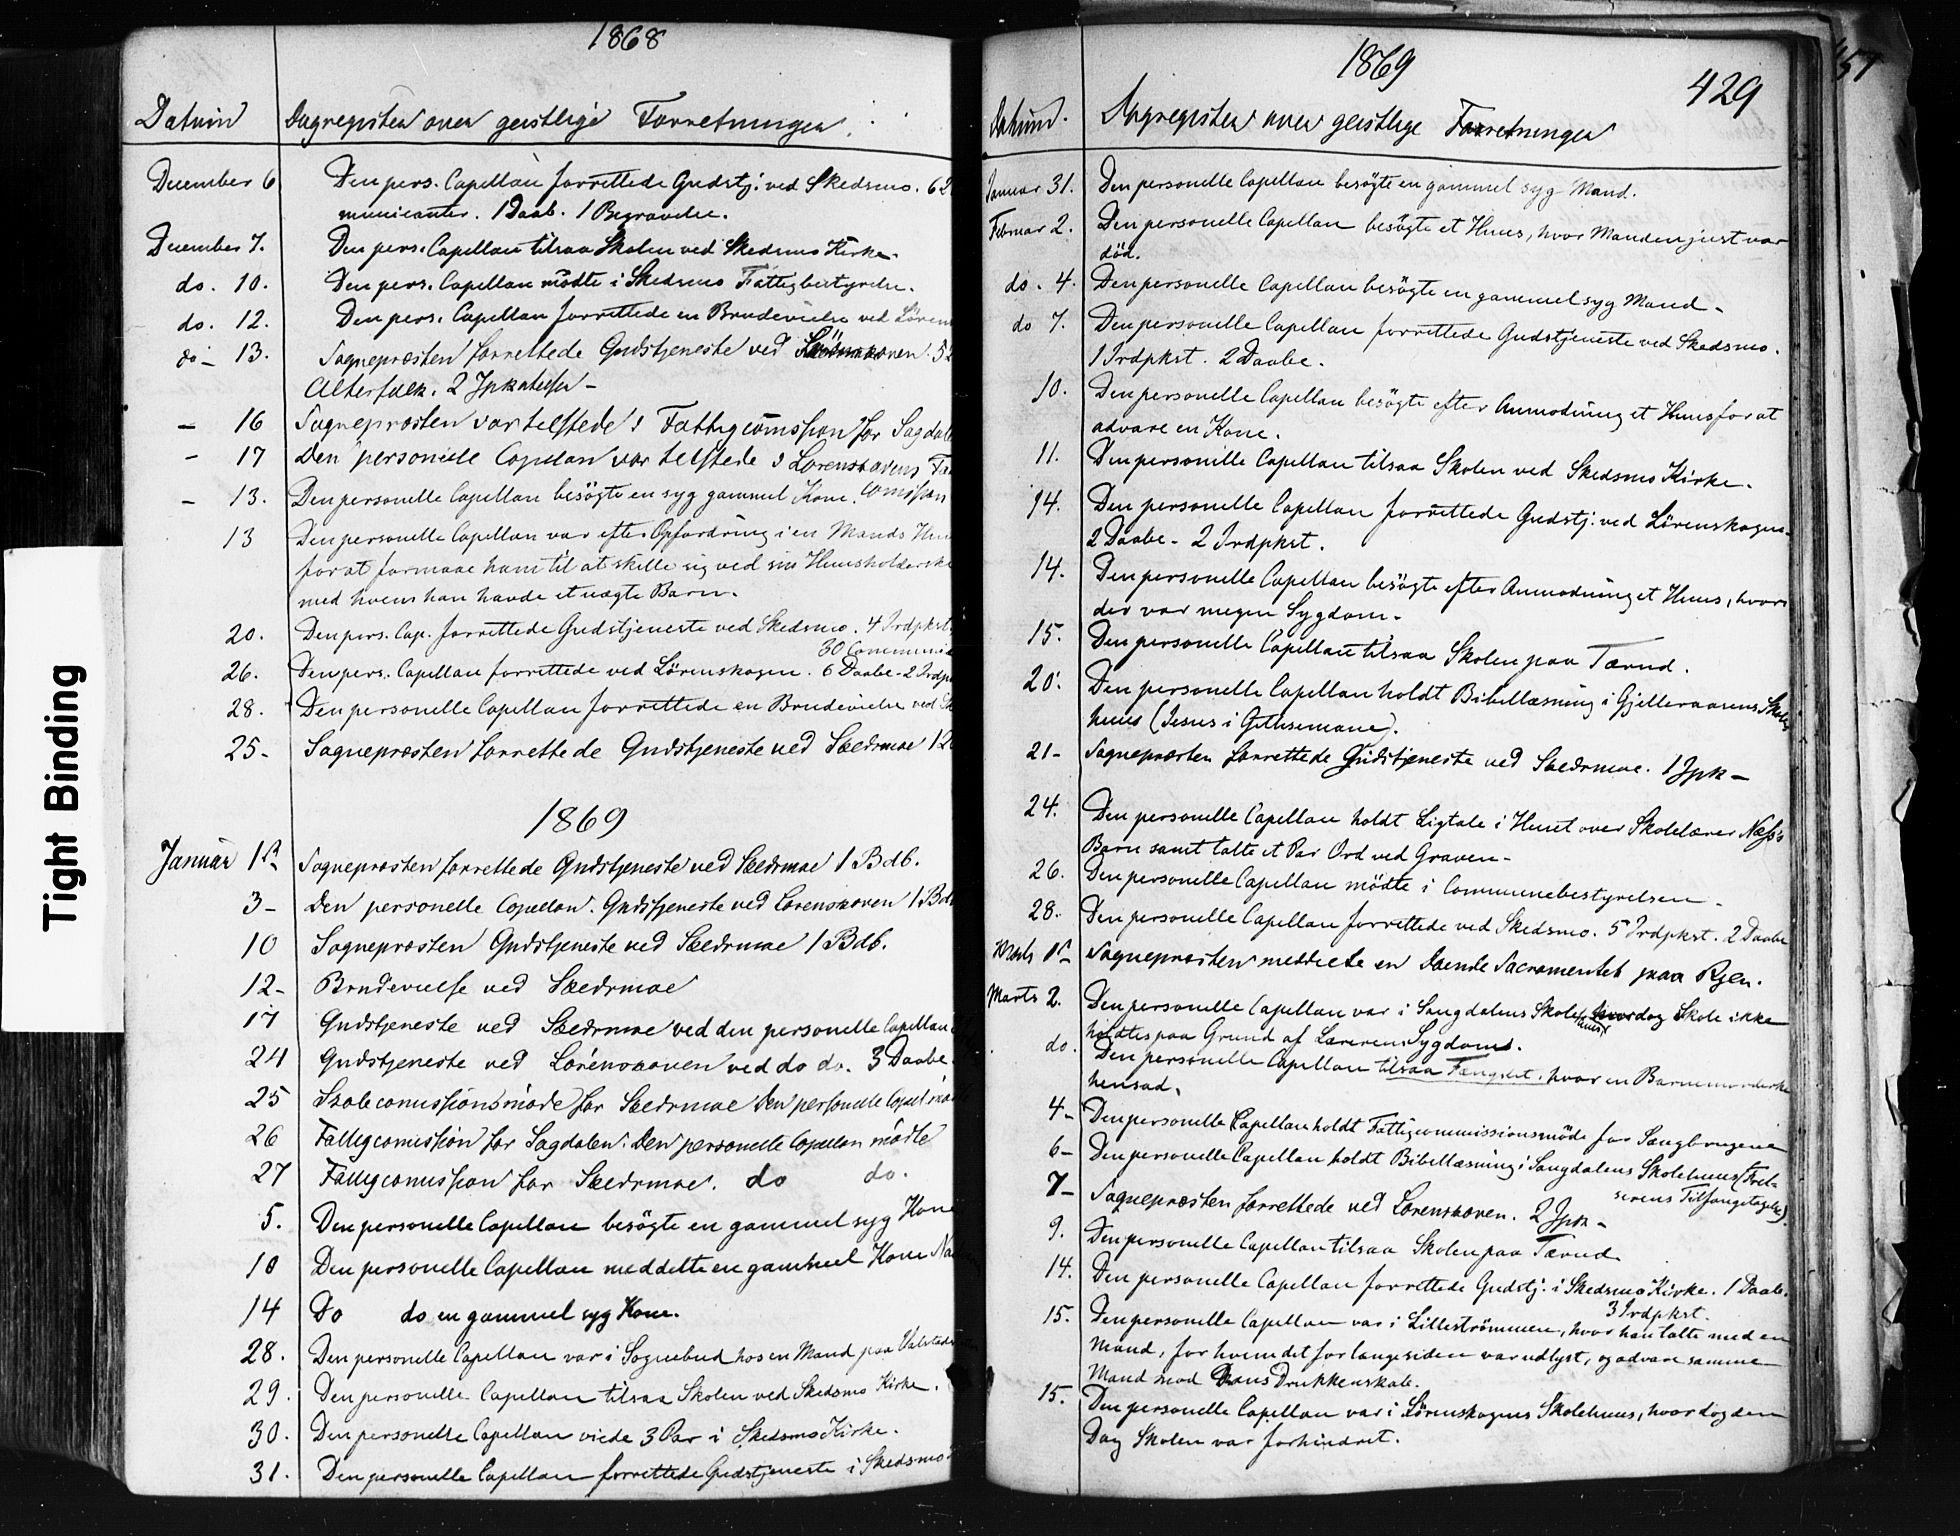 1868
Datum Dagregister over geistlige Forretninger.
December 6 Den pers. Capellan forrettede Gudstj. ved Skedsmo. 62
municanter. 1 Daab. 1 Begravelse.
December 7. Den pers. Capellan tilsaa Skolen ved Skedsmo Kirke.
do. 10. Den pers. Capellan mödte i Skedsmo Fattigbestyrelse.
do. 12. Den pers. Capellan forrettede en Brudevielse ved Lörens
do - 13. Sognepræsten forrettede Gudstjeneste ved 5
Alterfolk. 2
- 16 Sognepræsten var tilstede i Fattigcomission for Sagdale
- 17 Den personelle Capellan var tilstede i Lørenskovens Fa
- 13. Den personelle Capellan besögte en syg gammel Kone. Comission
13 Den personelle Capellan var efter Opfordring i en Mands Huu
for at formaae ham til at skille sig ved sin Huusholderske
med hvem han havde et uægte Barn.
20. Den pers. Cap. forrettede Gudstjeneste ved Skedsmo. 4 Irdpkst.
30 Communic
26. Den pers. Capellan forrettede ved Lörenskogen. 6 Daabe - 2 Irdp
28. Den personelle Capellan forrettede en Brudevielse ved Sk
25 - Sognepræsten forrettede Gudstjeneste ved Skedsmoe 12
1869
Januar 1ste Sognepræsten forrettede Gudstjeneste ved Skedsmoe 1 Bdb.
3 - Den personelle Capellan. Gudstjeneste ved Lorenskoven 1 Bdb
10 Sognepræsten Gudstjeneste ved Skedsmoe 1 Bdb.
12 - Brudevielse ved Skedsmoe
17 Gudstjeneste ved Skedsmoe ved den personelle Capellan
24 Gudstjeneste ved Lörenskoven ved do do. 3 Daabe.
25 Skolecomissionsmöde for Skedsmoe Den personelle Capel möd
26 Fattigcomission for Sagdalen. Den personelle Capellan mödte
27 Fattigcomission for Skedsmoe. do do.
5. Den personelle Capellan besögte en gammel syg Kone
10 Den personelle Capellan meddelte en gammel Kone Na
14 Do do en gammel syg Kone.
28. Den personelle Capellan var i Sognebud hos en Mand paa Valstad
29. Den personelle Capellan tilsaa Skolen ved Skedsmo Kirke.
30. Den personelle Capellan viede 3 Par i Skedsmo Kirke.
31. Den personelle Capellan forrettede Gudstjeneste i Skedsmo
Tight Binding
1869
429
457
Datum. Dagregister over geistlige Forretninger
Januar 31. Den personelle Capellan besögte en gammel syg Mand.
Februar 2. Den personelle Capellan besögte et Huus, hvor Manden just var
död.
do. 4. Den personelle Capellan besögte en gammel syg Mand -
do 7. Den personelle Capellan forrettede Gudstjeneste ved Skedsmo.
1 Irdpkst. 2 Daabe.
10. Den personelle Capellan besögte efter Anmodning et Huus for at
advare en Kone.
11. Den personelle Capellan tilsaa Skolen ved Skedsmo Kirke.
14. Den personelle Capellan forrettede Gudstj. ved Lörenskogen -
2 Daabe - 2 Irdpkst.
14. Den personelle Capellan besögte efter Anmodning et Huus, hvor
der var megen Sygdom.
15. Den personelle Capellan tilsaa Skolen paa Tærud.
20. Den personelle Capellan holdt Bibellæsning i Gjelleraasens Skole
huus (Jesus i Gethsemane).
21 - Sognepræsten forrettede Gudstjeneste ved Skedsmoe. 1 Jpk -
24. Den personelle Capellan holdt Ligtale i Huset over Skolelærer Næss's
Barn samt talte et Par Ord ved Graven -
26. Den personelle Capellan mödte i Communebestyrelsen.
28. Den personelle Capellan forrettede ved Skedsmo. 5 Irdpkst. 2 Daabe
Marts 1ste Sognepræsten meddelte en döende Sacramentet paa Ryen.
Marts 2. Den personelle Capellan var i Saugdalens Skolehuus, hvor dog Skole ikke
holdtes paa Grund af Lærerens Sygdom.
do. Den personelle Capellan tilsaa Fængslet, hvor en Barnemorderske
hensad.
4 - Den personelle Capellan holdt Fattigcommissionsmöde for Saugbrugene
6 - Den personelle Capellan holdt Bibellæsning i Saugdalens Skolehuus (Frel-
serens Tilfangetagelse).
7 - Sognepræsten forrettede ved Lorenskoven. 2 Jpk -
9. Den personelle Capellan tilsaa Skolen paa Tærud
14. Den personelle Capellan forrettede Gudstj. i Skedsmo Kirke. 1 Daab.
3 Irdpkst.
15. Den personelle Capellan var i Lilleströmmen, hvor han talte med en
Mand, for hvem det for længe siden var udlyst, og advare samme
Mand mod hans Drukkenskab.
15. Den personelle Capellan var i Lörenskogens Skolehuus, hvor dog den
Dag Skolen var forhindret.